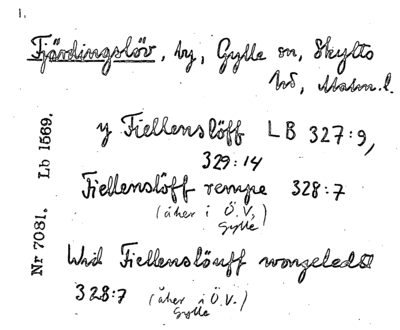 1.
Fjärdingslöv, by, Gylle sn, Skytts
hd, Malm.l.
y Fiellenslöff LB 327:9,
329:14
Fiellenslöff rempe 328:7
(åker i Ö.V,
Gylle)
Wid Fiellenslöuff wongeleds
328:7 (åker i Ö.V.)
Gylle
Nr 7081. Lb 1569.